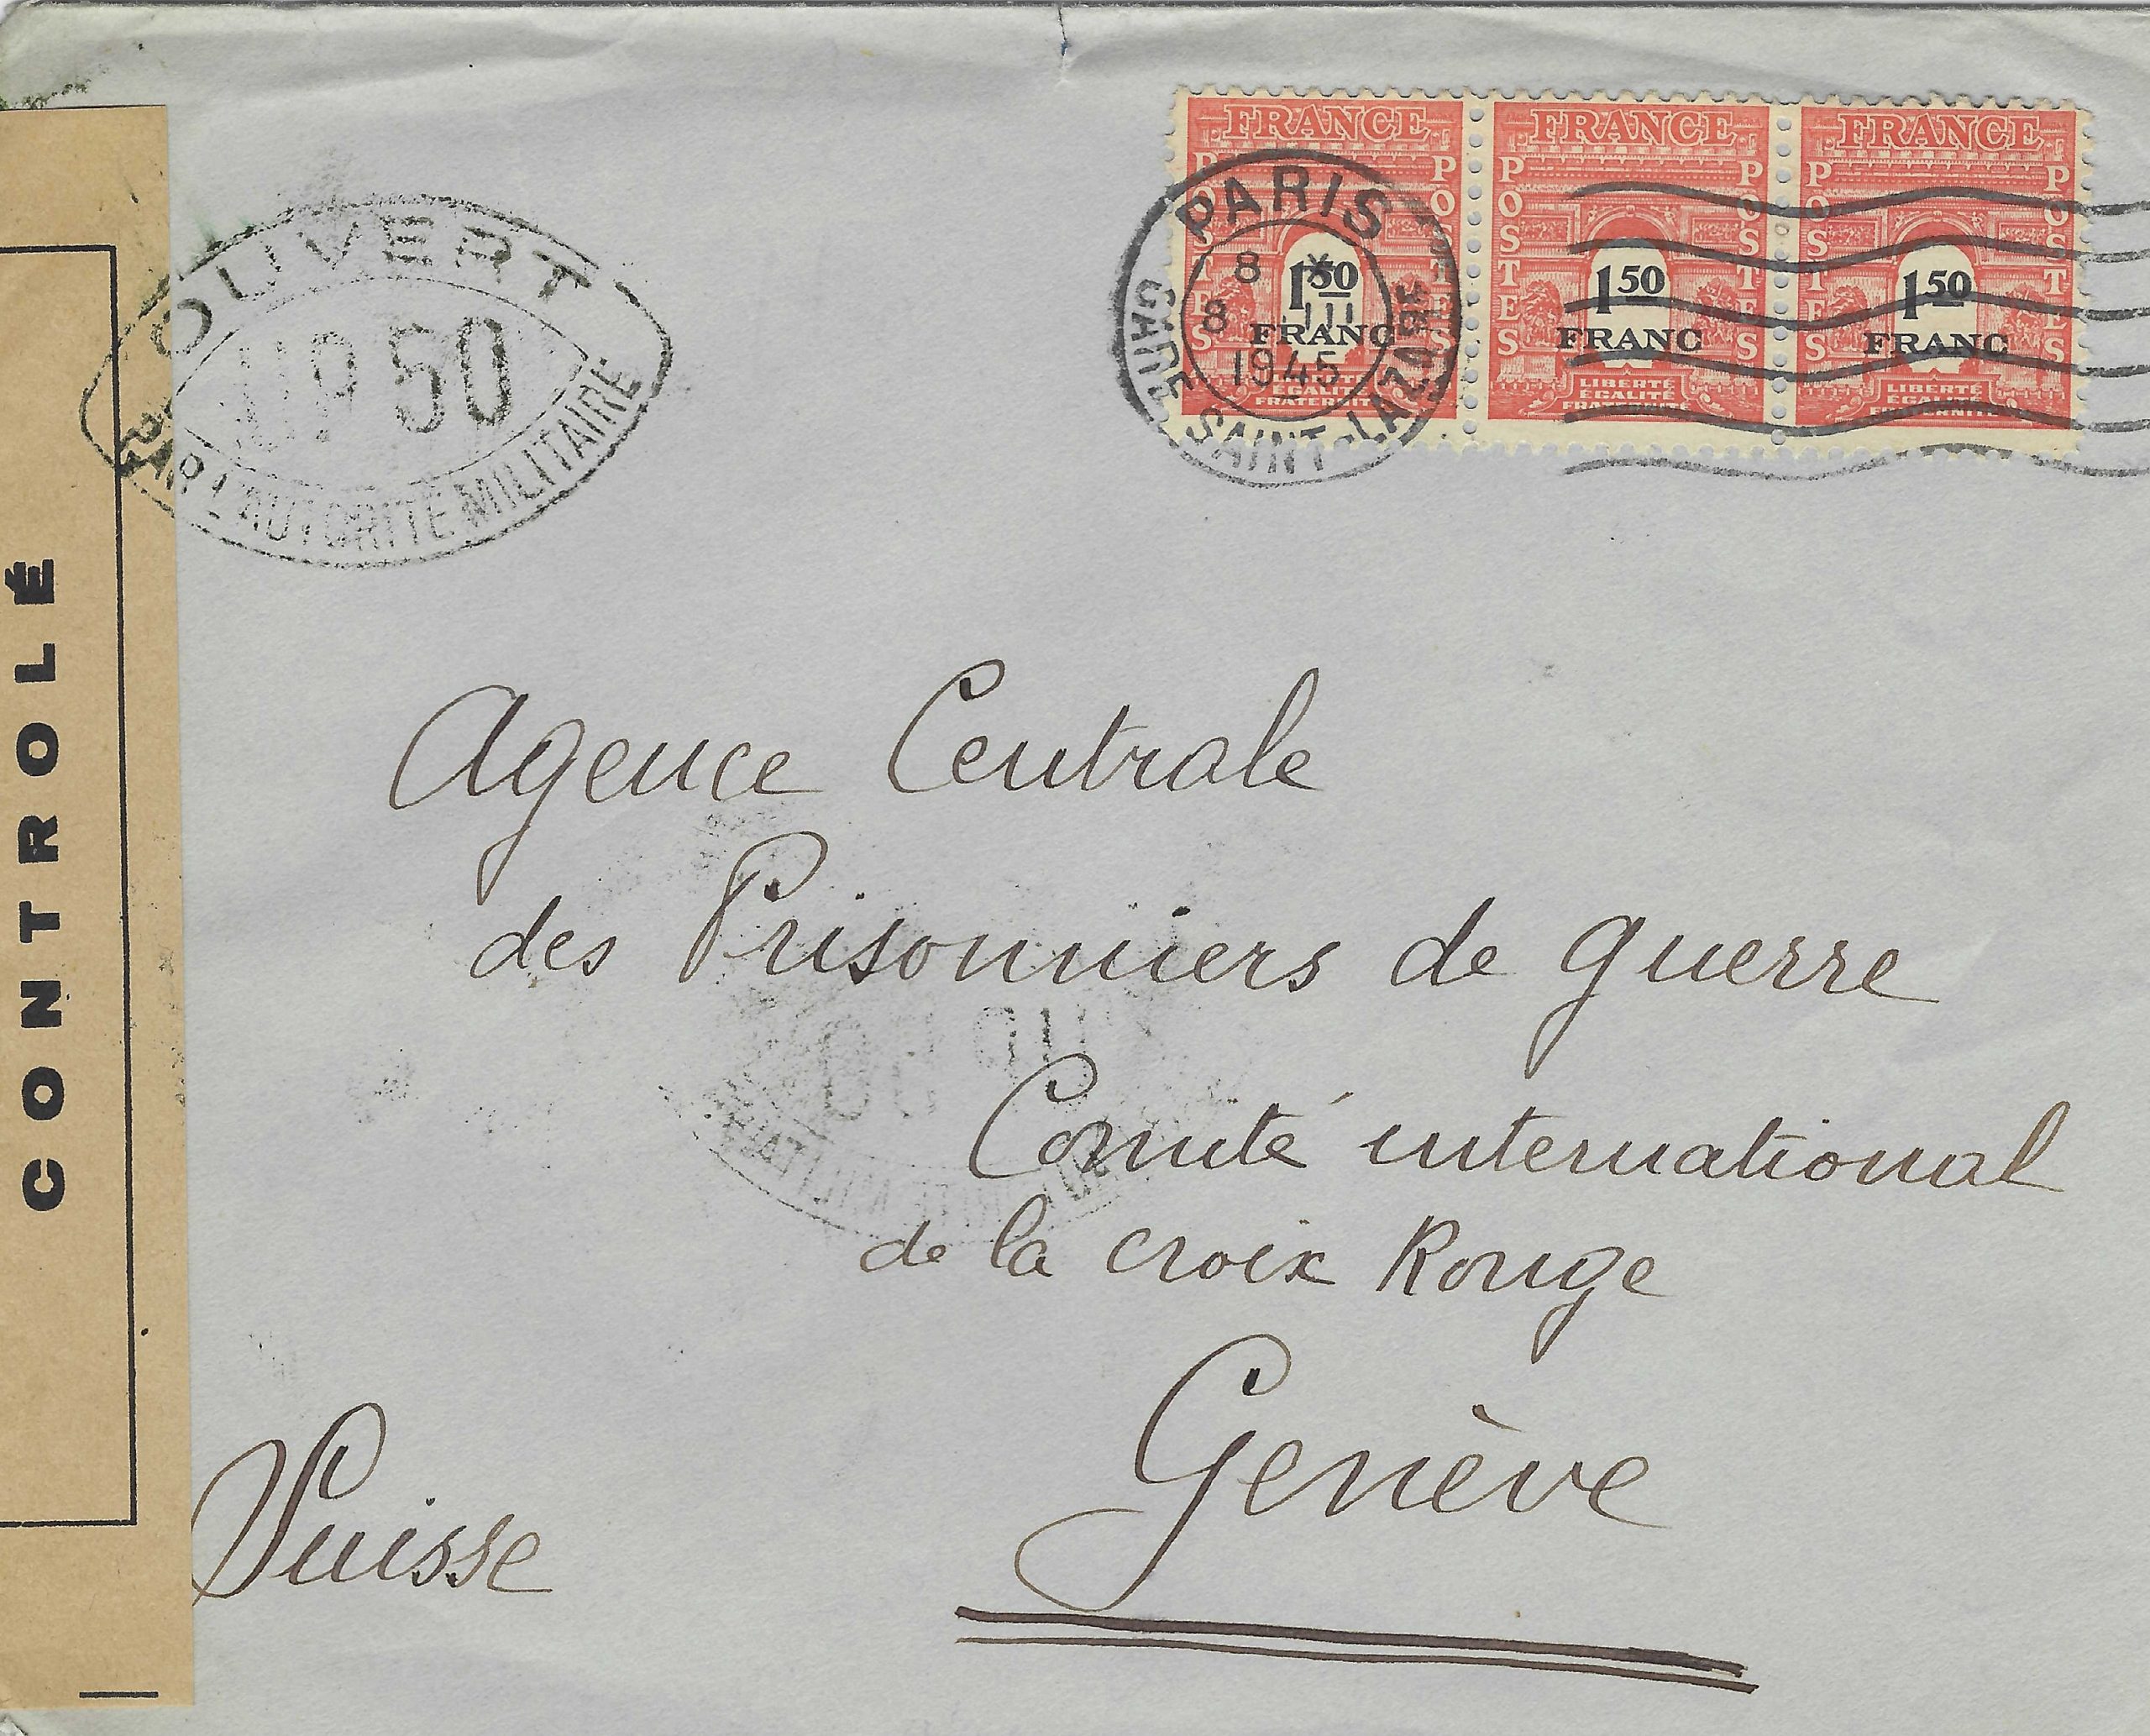 FRANCE FRANCE FRANCE
POSTES POSTES POSTES POSTES POSTES POSTES
1 50 FRANC 1 50 FRANC 1 50 FRANC
LIBERTÉ ÉGALITÉ FRATERNITÉ
LIBERTÉ ÉGALITÉ FRATERNITÉ
PARIS
8 *
8 III
1945
GARE SAINT-LAZARE
OUVERT
50
PAR L'AUTORITÉ MILITAIRE
CONTROLÉ
Agence Centrale
des Prisonniers de guerre
Comité international
de la croix Rouge
Genève
Suisse